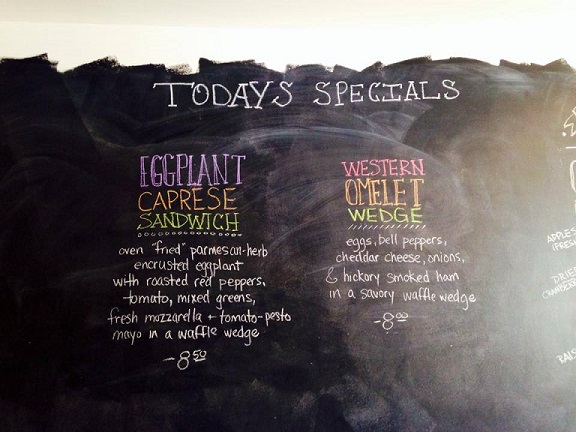 TODAYS SPECIALS
EGGPLANT
CAPRESE
SANDWICH
oven "fried" parmesan-herb
encrusted eggplant
with roasted red peppers,
tomato, mixed greens,
fresh mozzarella + tomato-pesto
mayo in a waffle wedge
-8.50
WESTERN
OMELET
WEDGE
eggs, bell peppers,
cheddar cheese, onions,
& hickory smoked ham
in a savory waffle wedge
-8.00
APPLES
DRIED